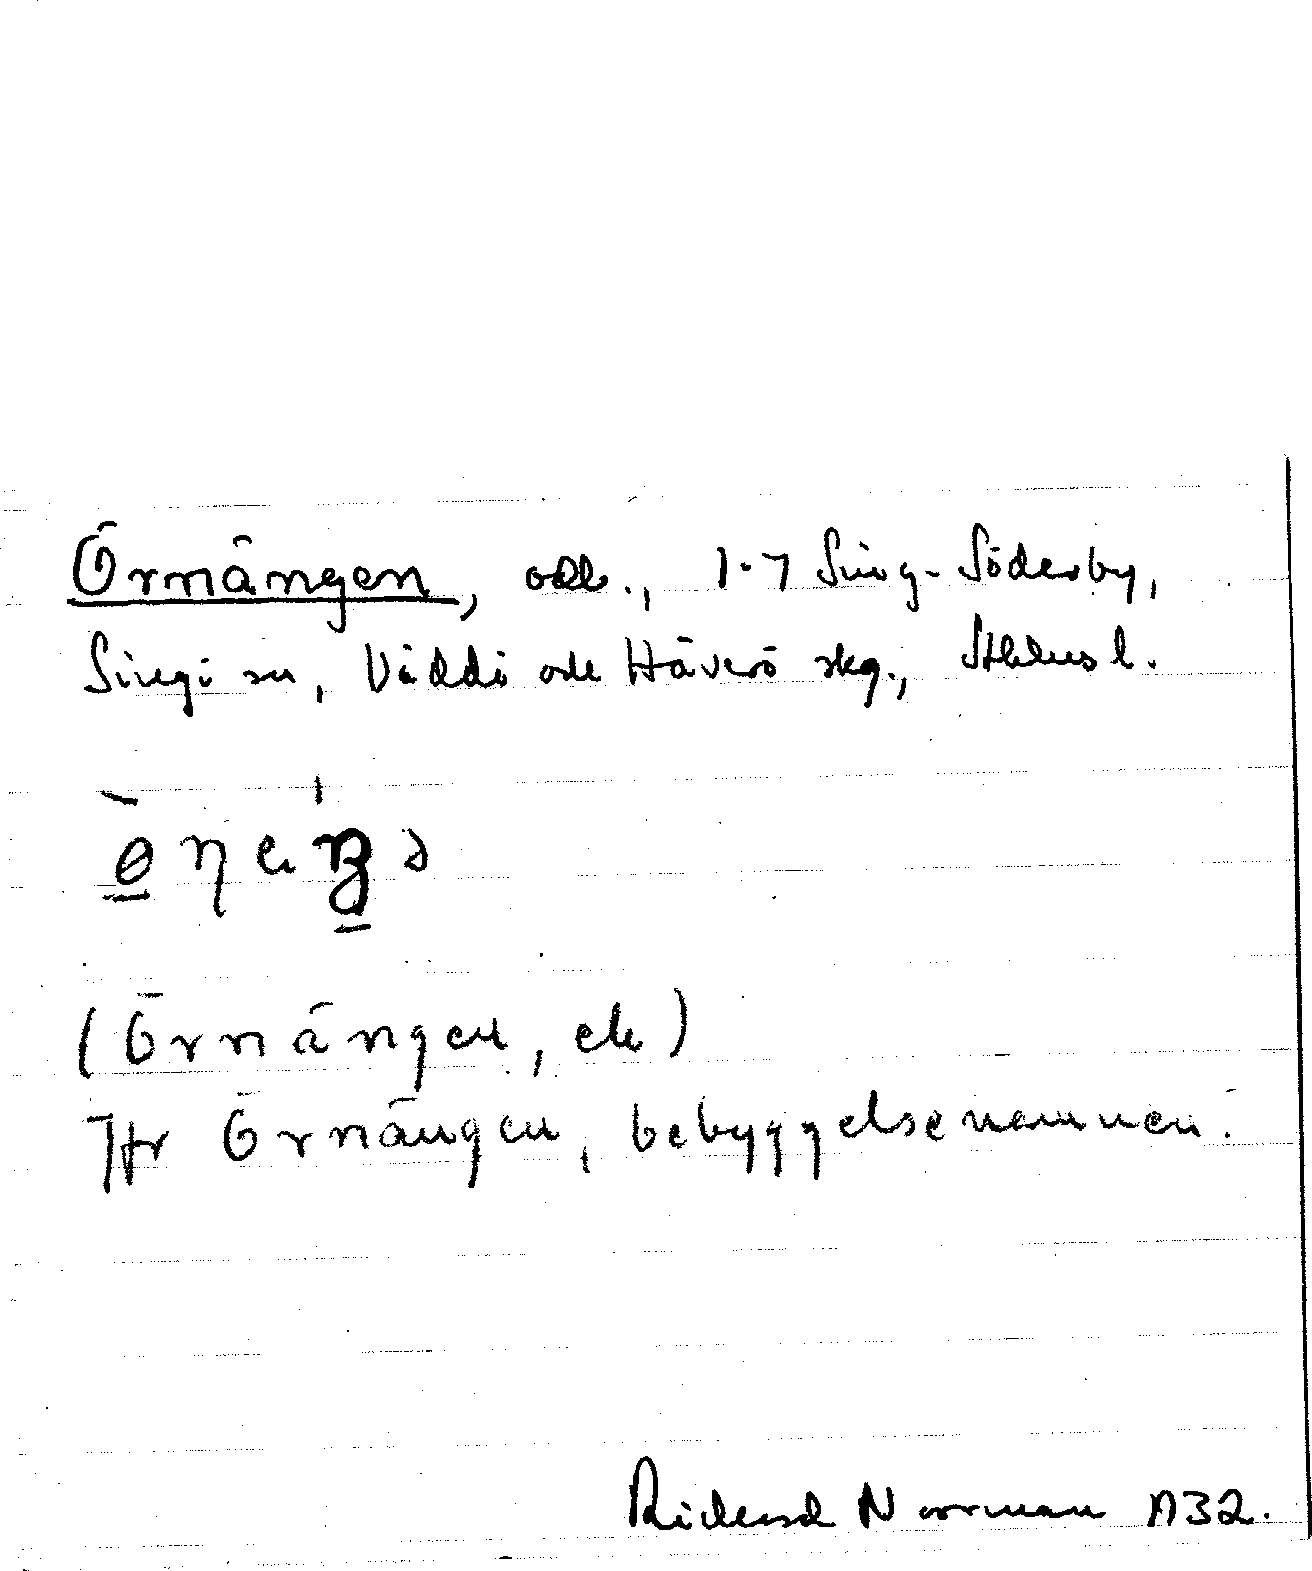 Örnängen, odl., 1-7 Sing-Söderby,
Singö sn, Väddö och Häverö skg., Sthlms l.
(Örnängen, ek)
Jfr Örnängen, bebyggelsenamnen.
Richard Norrman 1932.